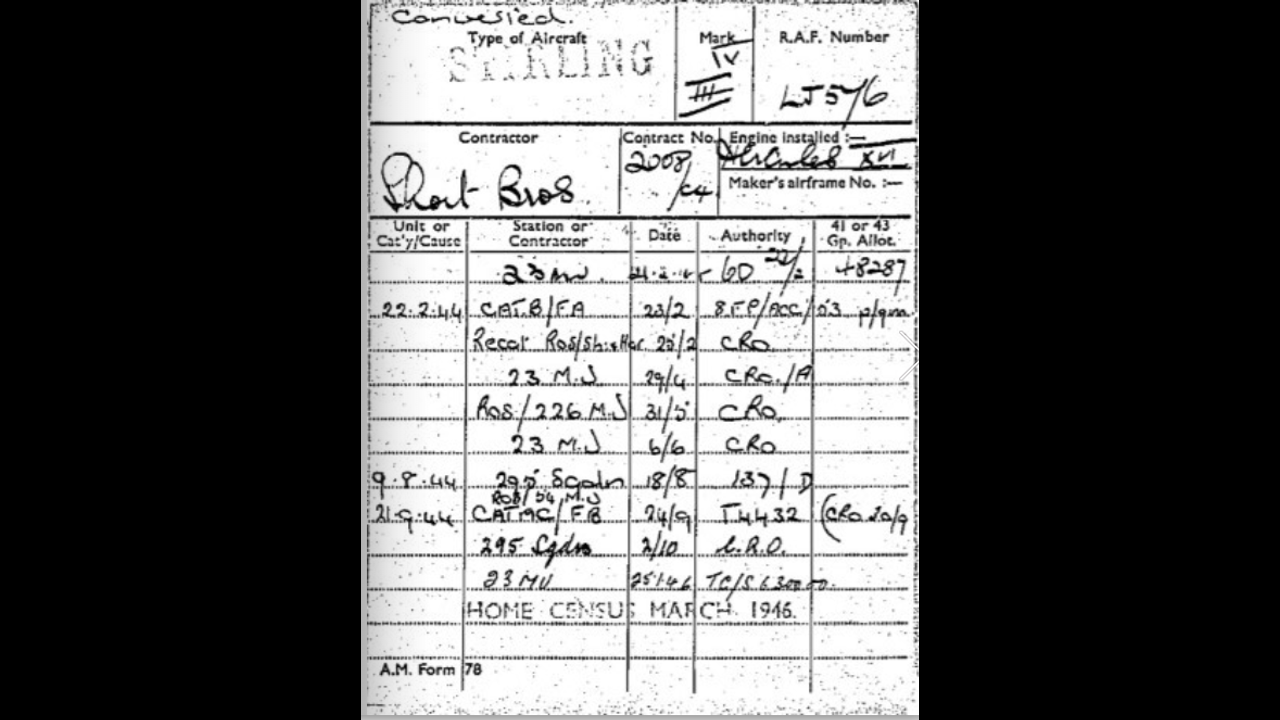 Converted.
Type of Aircraft Mark R.A.F. Number
STIRLING IV
III LJ576
Contractor Contract No. Engine installed :—
Short Bros. 2008/C4 Hercules XVI
Maker's airframe No. :—
Unit or Cat'y/Cause Station or Contractor Date Authority 41 or 43 Gp. Allot.
23 MU. 6D 22/2 48287
22.2.44 CAT.B/FA 23/2 8FP/ACC/53
Recat Ros/ 25/2 CRO
23 M.U 29/4 CRO./A
ROS/226 M.U 31/5 CRO.
23 M.U 6/6 CRO
9.8.44 295 Sqdn 18/8 137/D
ROS/54 M.U
21.9.44 CAT AC/FB 24/9 T4432 (CRO 20/9
295 Sqdn 2/10 C.R.O.
23 MU 25.1.46 TC/S
HOME CENSUS MARCH 1946.
A.M. Form 78